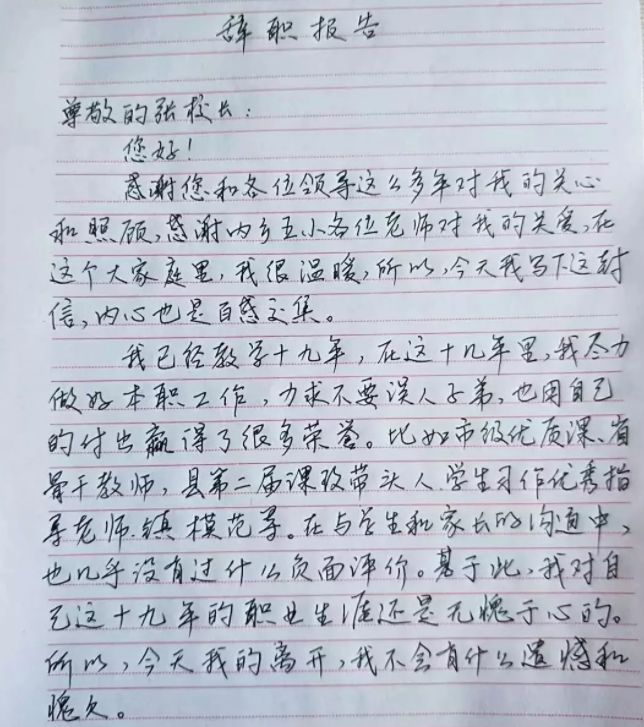 辞职报告
尊敬的张校长：
您好！
感谢您和各位领导这么多年对我的关心
和照顾,感谢内乡五小各位老师对我的关爱,在
这个大家庭里,我很温暖,所以,今天我写下这封
信,内心也是百感交集。
我已经教学十九年,在这十几年里,我尽力
做好本职工作,力求不要误人子弟,也用自己
的付出赢得了很多荣誉。比如市级优质课、省
骨干教师,县第二届课改带头人.学生习作优秀指
导老师.镇模范等。在与学生和家长的沟通中,
也几乎没有过什么负面评价。基于此,我对自
己这十九年的职业生涯还是无愧于心的。
所以,今天我的离开,我不会有什么遗憾和
愧欠。